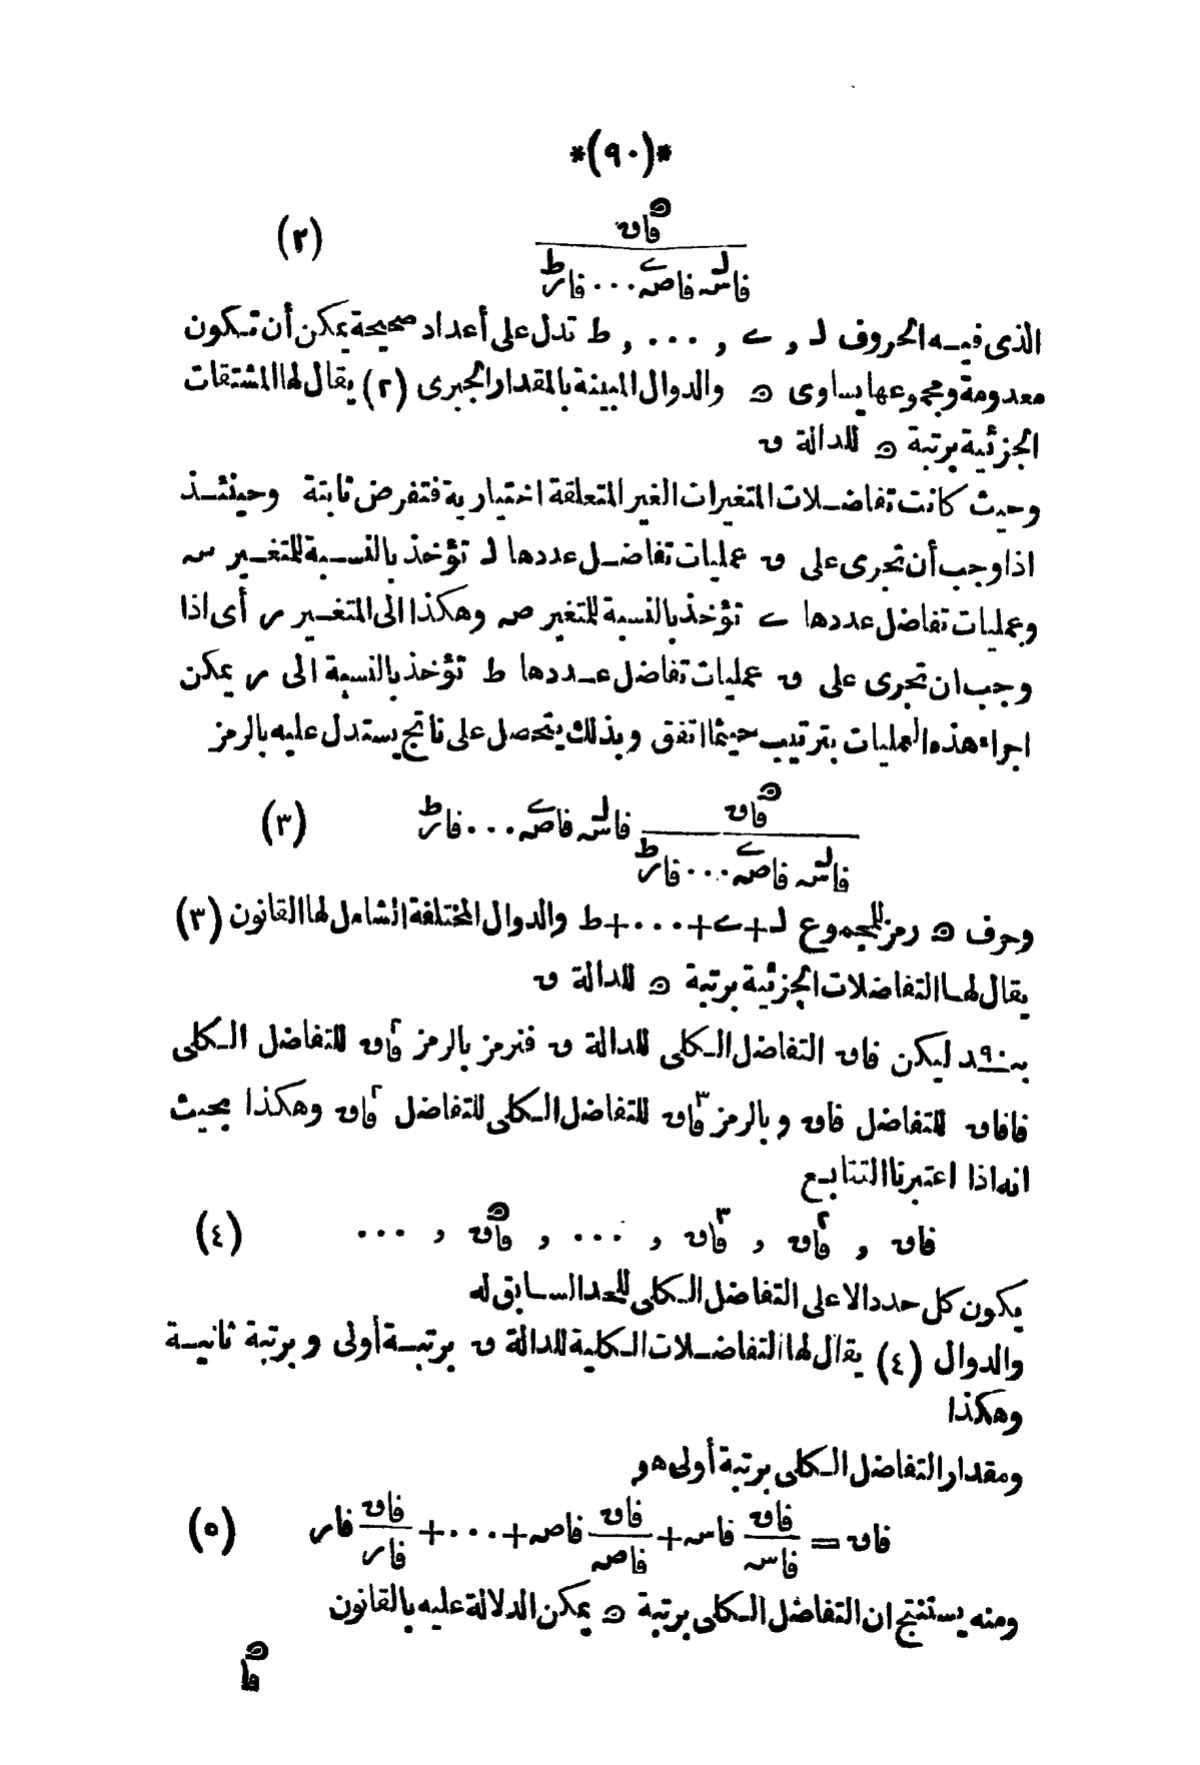 *(٩٠)*
(٢) ڡاںﮫ / ڡاسہ ڡاصہ ... ڡار
الذى فيه الحروف لـ , ے , ... , ط تدل على أعداد صحيحة يمكن أن تكون
معدومة ومجموعها يساوى ﮫ والدوال المبينة بالمقدار الجبرى (٢) يقال لها المشتقات
الجزئية برتبة ﮫ للدالة ں
وحيث كانت تفاضلات المتغيرات الغير المتعلقة اختيارية فتفرض ثابتة وحينئذ
اذا وجب أن تجرى على ں عمليات تفاضل عددها لـ تؤخذ بالنسبة للمتغير سہ
وعمليات تفاضل عددها ے تؤخذ بالنسبة للمتغير صہ وهكذا الى المتغير ر أى اذا
وجب ان تجرى على ں عمليات تفاضل عددها ط تؤخذ بالنسبة الى ر يمكن
اجراء هذه العمليات بترتيب حيثما اتفق وبذلك يتحصل على ناتج يستدل عليه بالرمز
(٣) ڡاںﮫ / ڡاسہ ڡاصہ ... ڡار ڡاسہ ڡاصہ ... ڡار
وحرف ﮫ رمز للمجموع لـ+ے+...+ط والدوال المختلفة الشامل لها القانون (٣)
يقال لها التفاضلات الجزئية برتبة ﮫ للدالة ں
بند ٩٠ ليكن ڡاں التفاضل الكلى للدالة ں فنرمز بالرمز ڡا٢ں للتفاضل الكلى
ڡاڡاں للتفاضل ڡاں وبالرمز ڡا٣ں للتفاضل الكلى للتفاضل ڡا٢ں وهكذا بحيث
انه اذا اعتبرنا التتابع
ڡاں , ڡا٢ں , ڡا٣ں , ... , ڡاﮫں , ... (٤)
يكون كل حد دالا على التفاضل الكلى للحد السابق له
والدوال (٤) يقال لها التفاضلات الكلية للدالة ں برتبة أولى وبرتبة ثانية
وهكذا
ومقدار التفاضل الكلى برتبة أولى هو
ڡاں = ڡاں/ڡاسہ ڡاسہ + ڡاں/ڡاصہ ڡاصہ + ... + ڡاں/ڡار ڡار (٥)
ومنه يستنتج ان التفاضل الكلى برتبة ﮫ يمكن الدلالة عليه بالقانون
ڡاﮫ